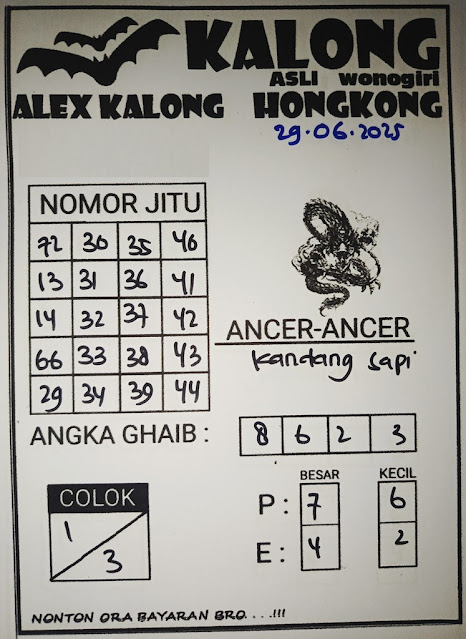 KALONG
ASLI wonogiri
ALEX KALONG HONGKONG
29.06.2025
NOMOR JITU
72 30 35 40
13 31 36 41
14 32 37 42
66 33 38 43
29 34 39 44
ANCER-ANCER
Kandang sapi
ANGKA GHAIB : 8 6 2 3
BESAR KECIL
COLOK
P : 7 6
1
E : 4 2
3
NONTON ORA BAYARAN BRO. . . .!!!